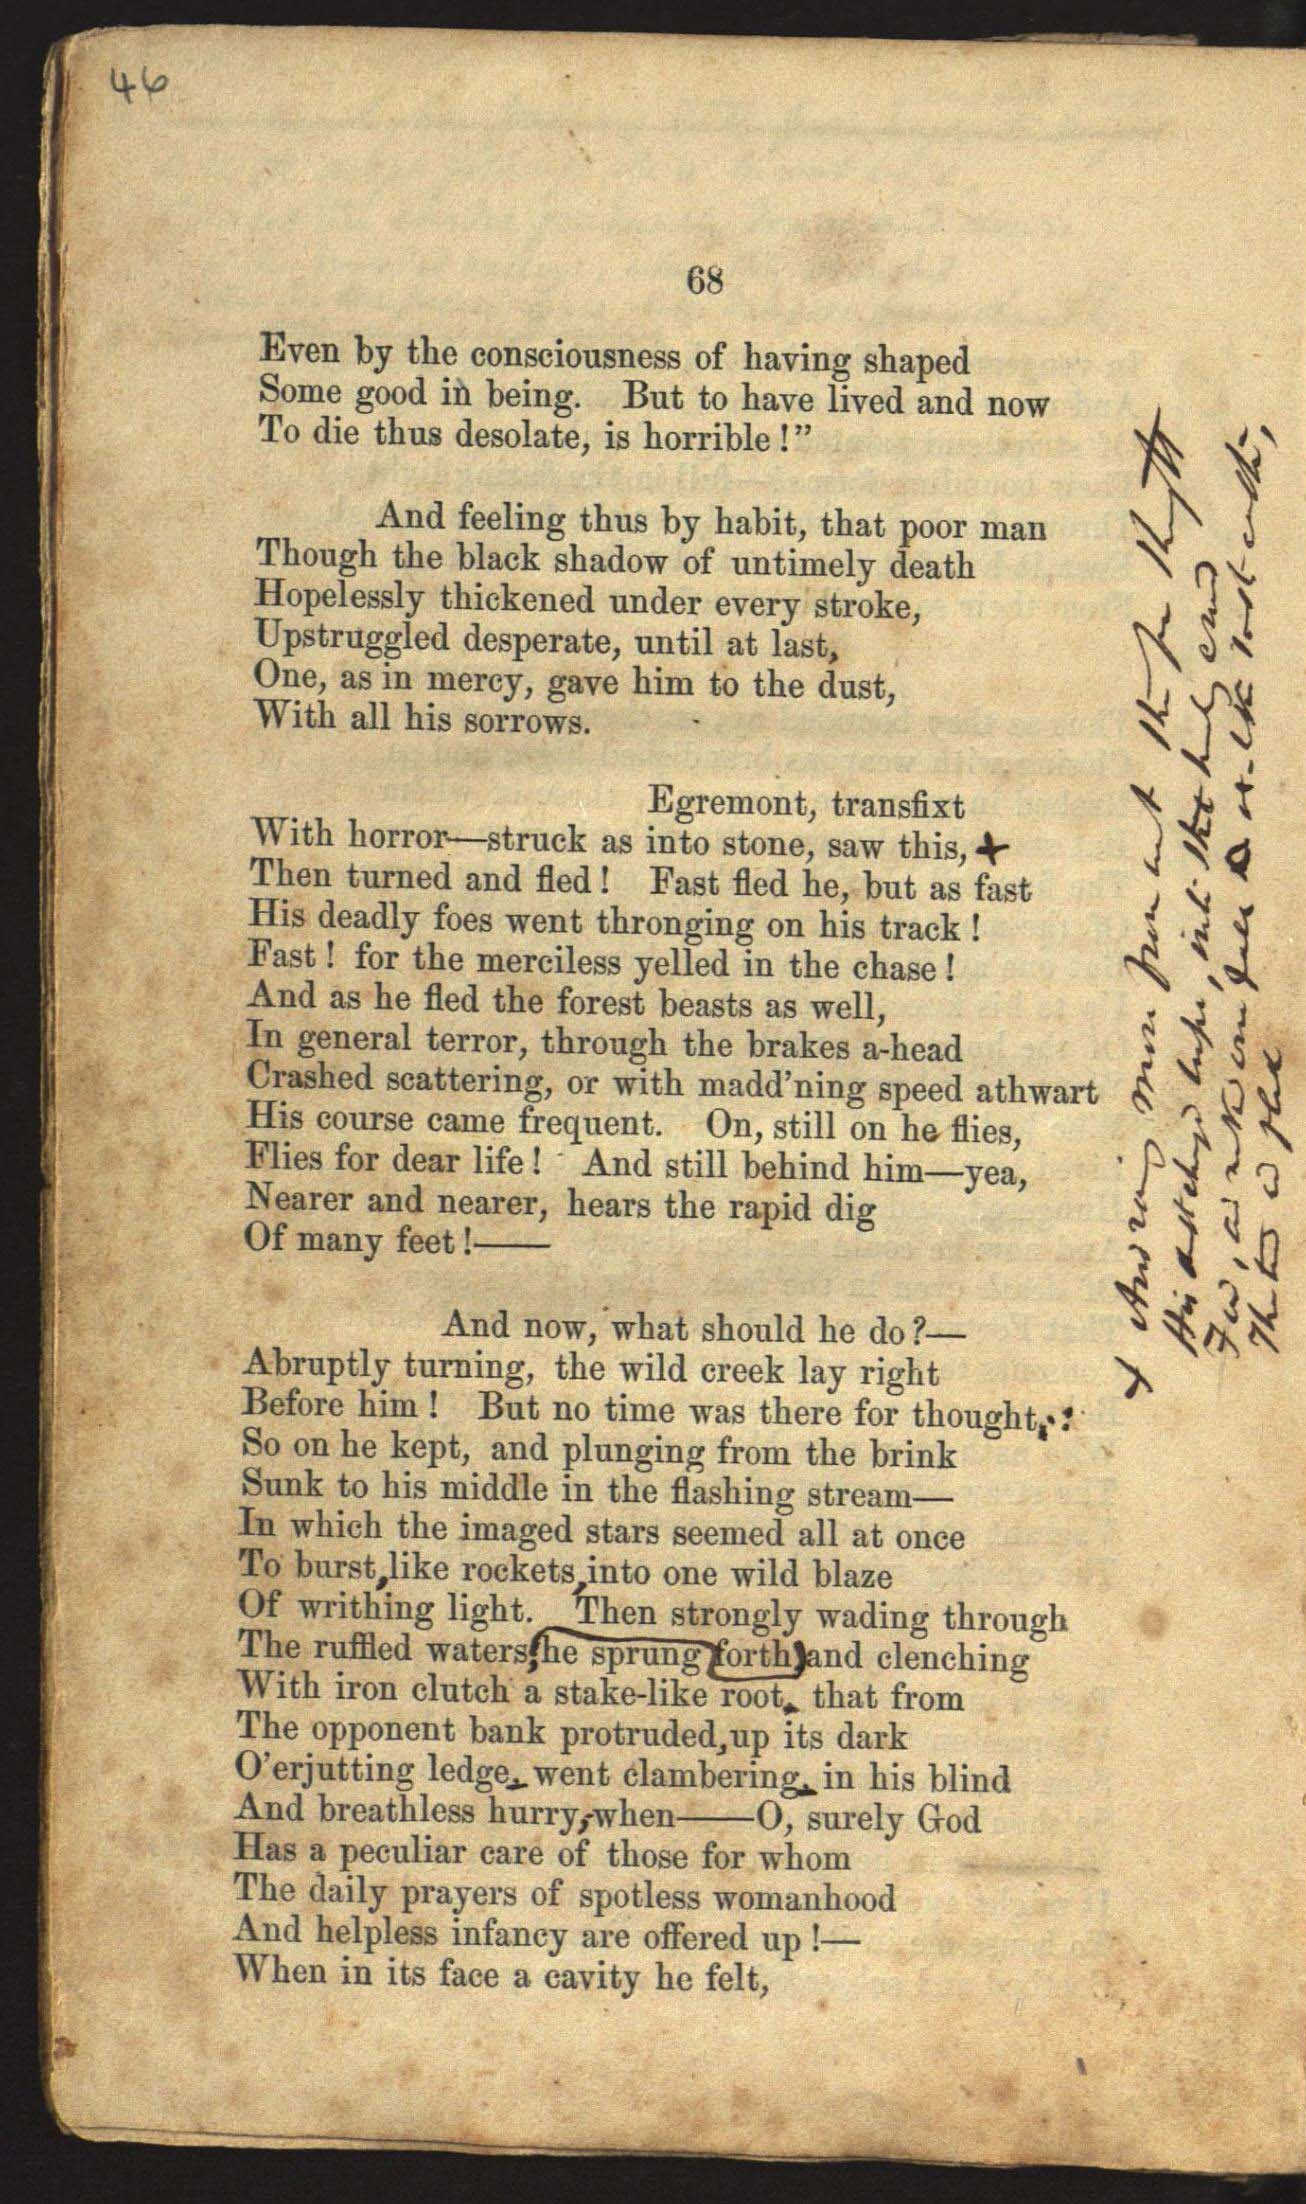 46
68
Even by the consciousness of having shaped
Some good in being. But to have lived and now
To die thus desolate, is horrible!”
And feeling thus by habit, that poor man
Though the black shadow of untimely death
Hopelessly thickened under every stroke,
Upstruggled desperate, until at last,
One, as in mercy, gave him to the dust,
With all his sorrows.
Egremont, transfixt
With horror—struck as into stone, saw this, +
Then turned and fled! Fast fled he, but as fast
His deadly foes went thronging on his track!
Fast! for the merciless yelled in the chase!
And as he fled the forest beasts as well,
In general terror, through the brakes a-head
Crashed scattering, or with madd’ning speed athwart
His course came frequent. On, still on he flies,
Flies for dear life! And still behind him—yea,
Nearer and nearer, hears the rapid dig
Of many feet!——
And now, what should he do?—
Abruptly turning, the wild creek lay right
Before him! But no time was there for thought;:
So on he kept, and plunging from the brink
Sunk to his middle in the flashing stream—
In which the imaged stars seemed all at once
To burst, like rockets, into one wild blaze
Of writhing light. Then strongly wading through
The ruffled waters, he sprung forth, and clenching
With iron clutch a stake-like root, that from
The opponent bank protruded, up its dark
O’erjutting ledge, went clambering, in his blind
And breathless hurry,-when——O, surely God
Has a peculiar care of those for whom
The daily prayers of spotless womanhood
And helpless infancy are offered up!—
When in its face a cavity he felt,
+ And
His